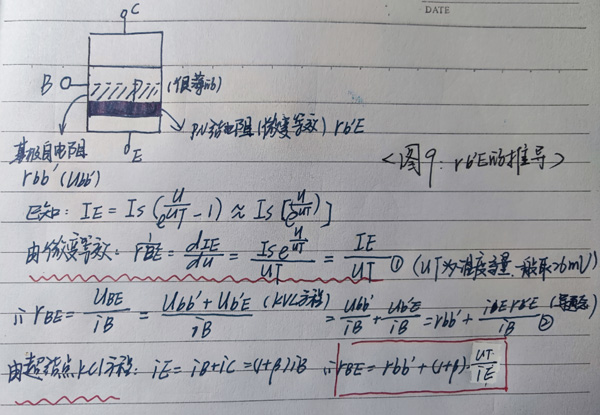 DATE
C
B
(很薄ib)
PN结电阻(微变等效) rb'E
E
基极自电阻
rbb'(Ubb')
<图9: rb'E的推导>
已知: IE = Is(e^{u/UT} - 1) ≈ Is[e^{u/UT}]
由微变等效: rB'E = dIE/du = Is e^{u/UT}/UT = IE/UT ① (UT为温度当量,一般取26mV)
∴ rBE = UBE/iB = Ubb'+Ub'E/iB (KVL方程) = Ubb'/iB + Ub'E/iB = rbb' + iBE rb'E/iB ②
由起始点KCL方程: iE = iB+iC = (1+β)iB ∴ rBE = rbb' + (1+β)·UT/iE